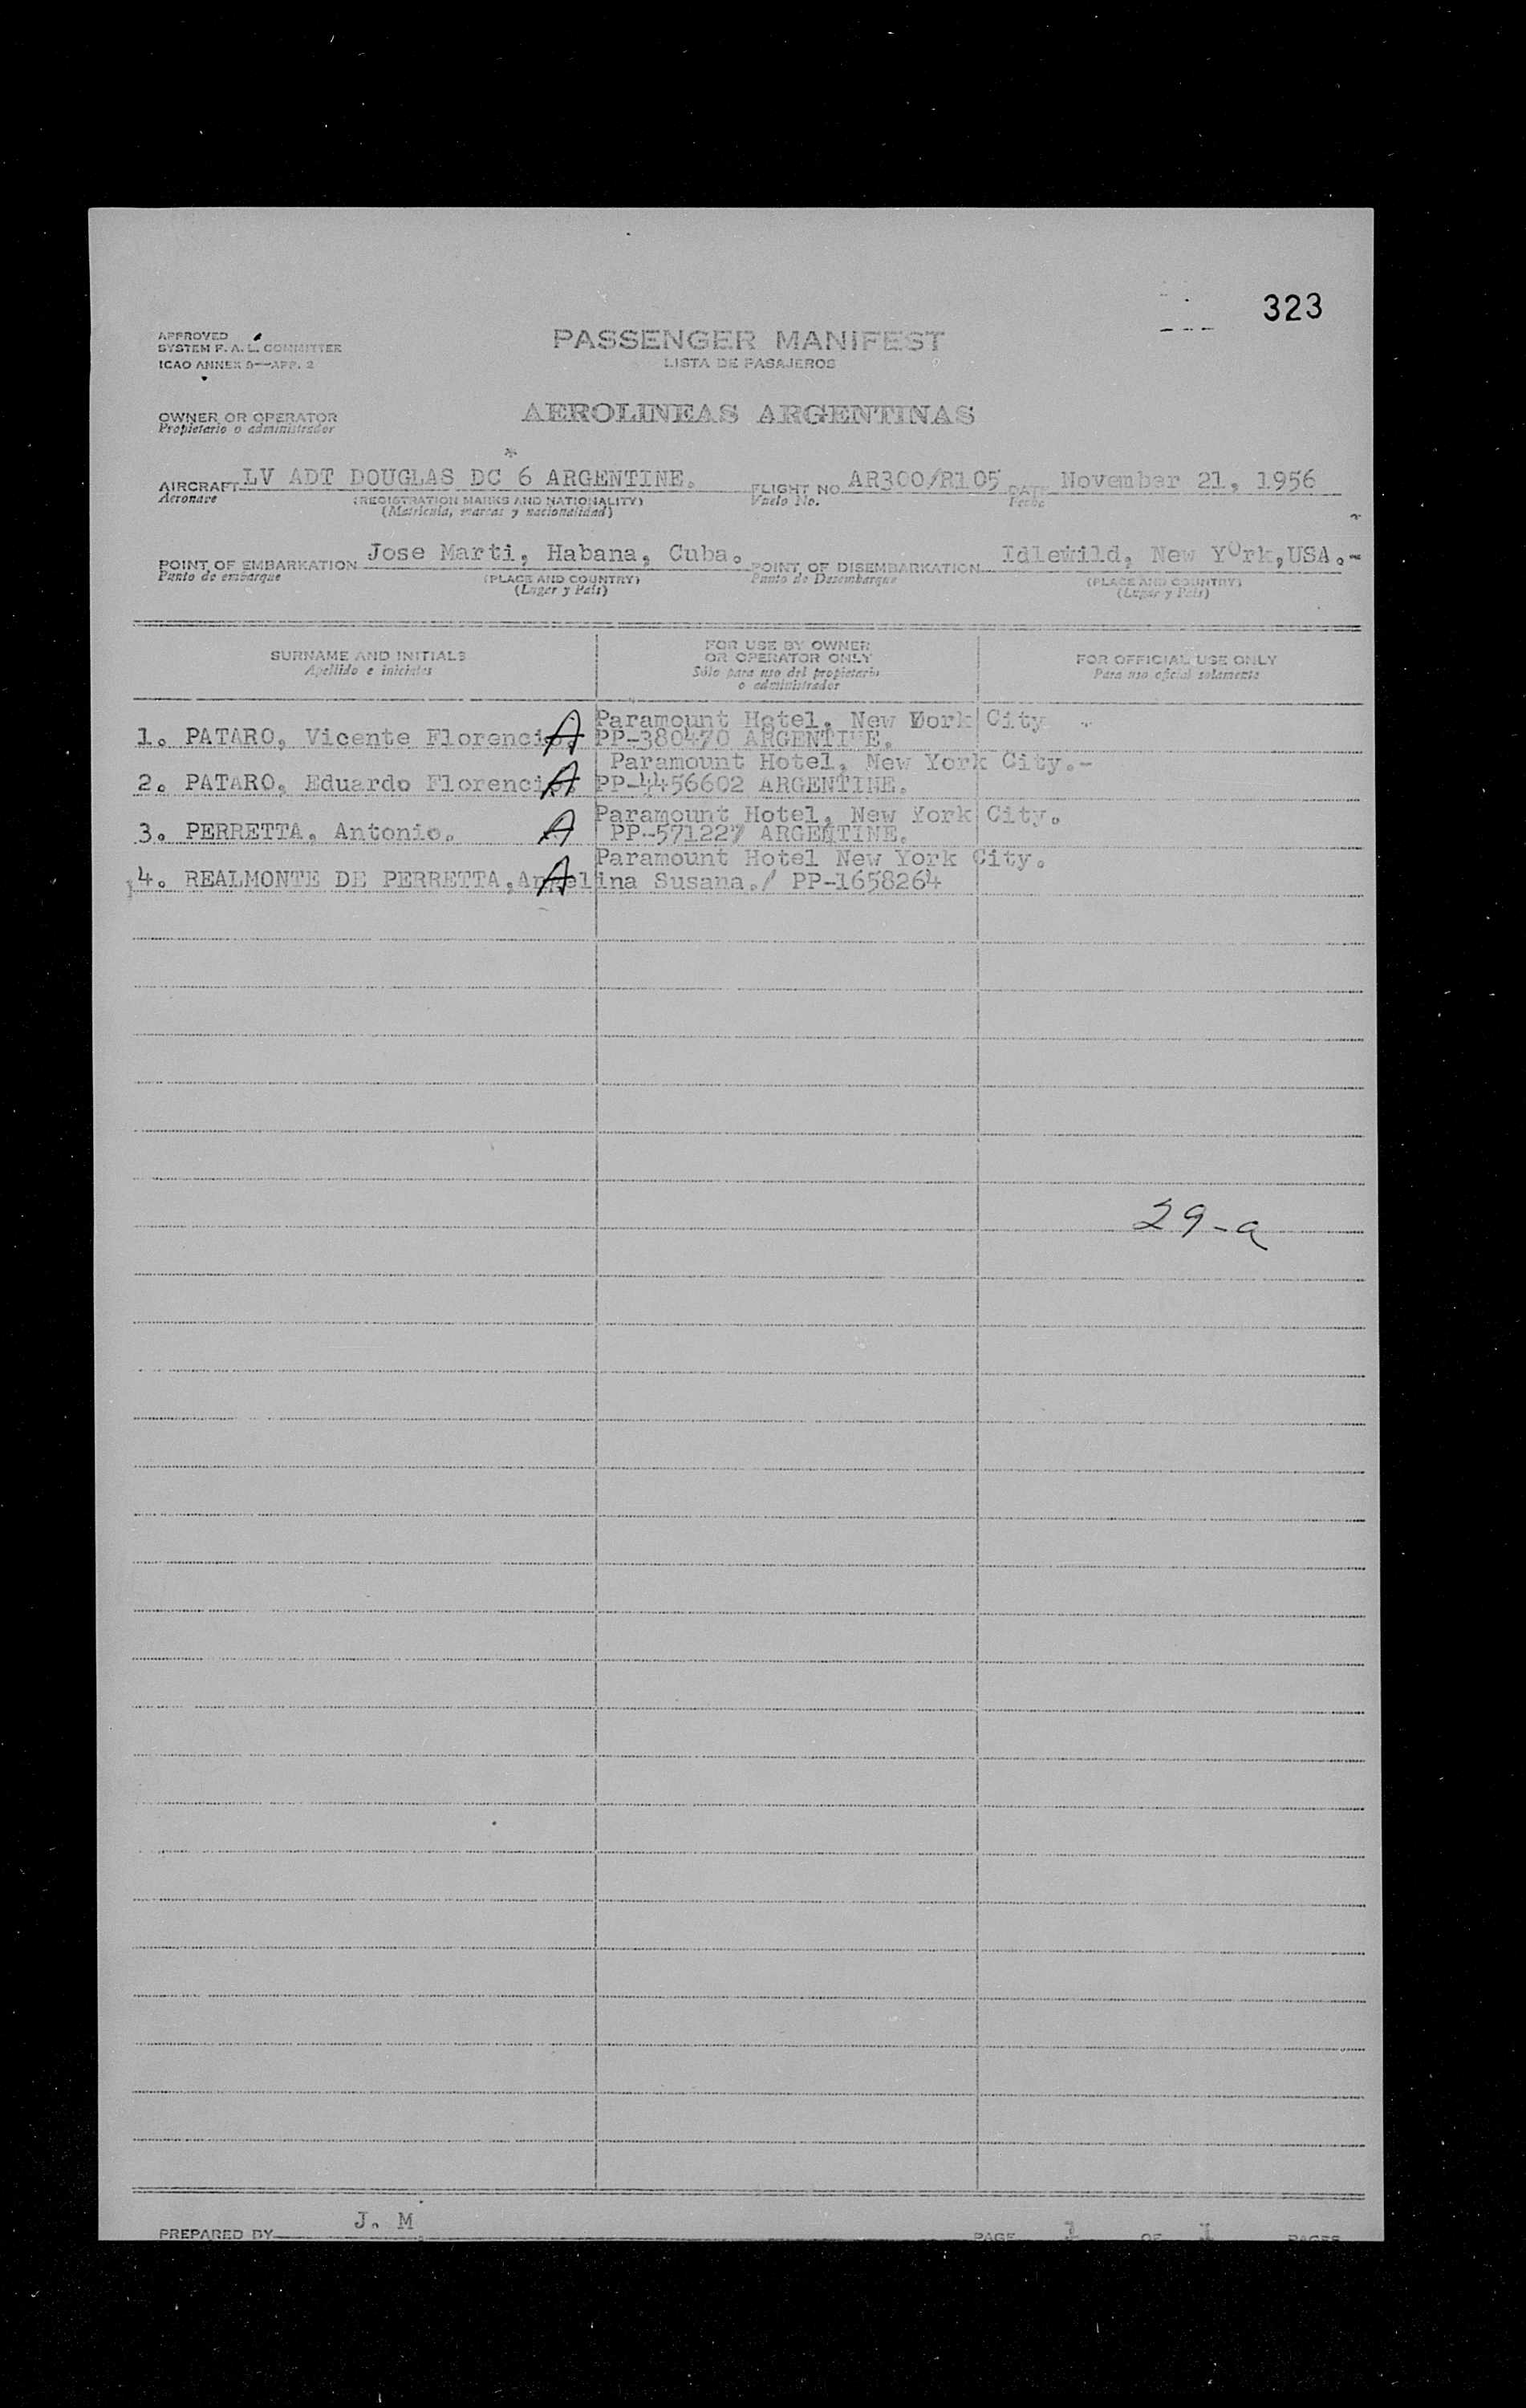 323
APPROVED
SYSTEM F. A. L. COMMITTEE
ICAO ANNEX 9—APP. 2
PASSENGER MANIFEST
LISTA DE PASAJEROS
OWNER OR OPERATOR
Propietario o administrador
AEROLINEAS ARGENTINAS
AIRCRAFT LV ADT DOUGLAS DC 6 ARGENTINE. FLIGHT NO. AR300/R105 DATE November 21, 1956
Aeronave (REGISTRATION MARKS AND NATIONALITY) Vuelo No. Fecha
(Matricula, marcas y nacionalidad)
POINT OF EMBARKATION Jose Marti, Habana, Cuba. POINT OF DISEMBARKATION Idlewild, New YOrk,USA.-
Punto de embarque (PLACE AND COUNTRY) Punto de Desembarque (PLACE AND COUNTRY)
(Lugar y País) (Lugar y País)
SURNAME AND INITIALS
Apellido e iniciales
FOR USE BY OWNER
OR OPERATOR ONLY
Sólo para uso del propietario
o administrador
FOR OFFICIAL USE ONLY
Para uso oficial solamente
Paramount Hotel. New York City
1. PATARO, Vicente Florencio. A PP-380470 ARGENTINE.
Paramount Hotel. New York City.-
2. PATARO, Eduardo Florencio. A PP-4456602 ARGENTINE.
Paramount Hotel, New York City.
3. PERRETTA, Antonio. A PP-571227 ARGENTINE.
Paramount Hotel New York City.
4. REALMONTE DE PERRETTA,Angelina Susana./ A PP-1658264
29-a
PREPARED BY J. M PAGE 1 OF 1 PAGES